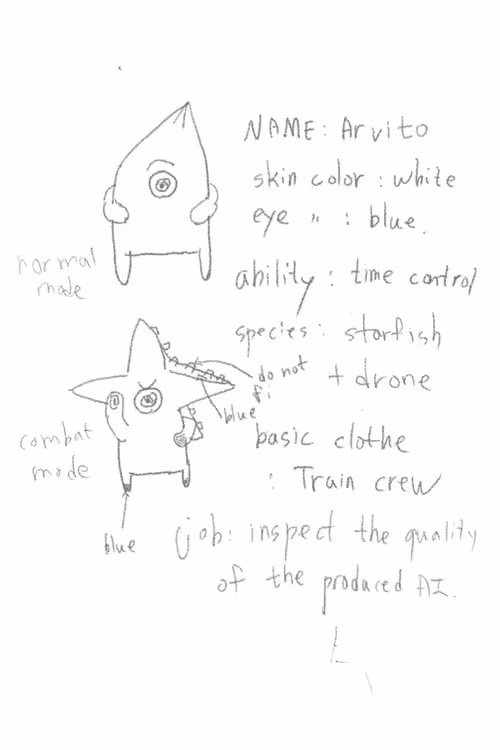 NAME: Arvito
skin color : white
eye 〃 : blue.
normal
mode
ability : time control
species : starfish
+ drone
do not
fi
blue
combat
mode
basic clothe
: Train crew
blue
job: inspect the quality
of the produced AI.